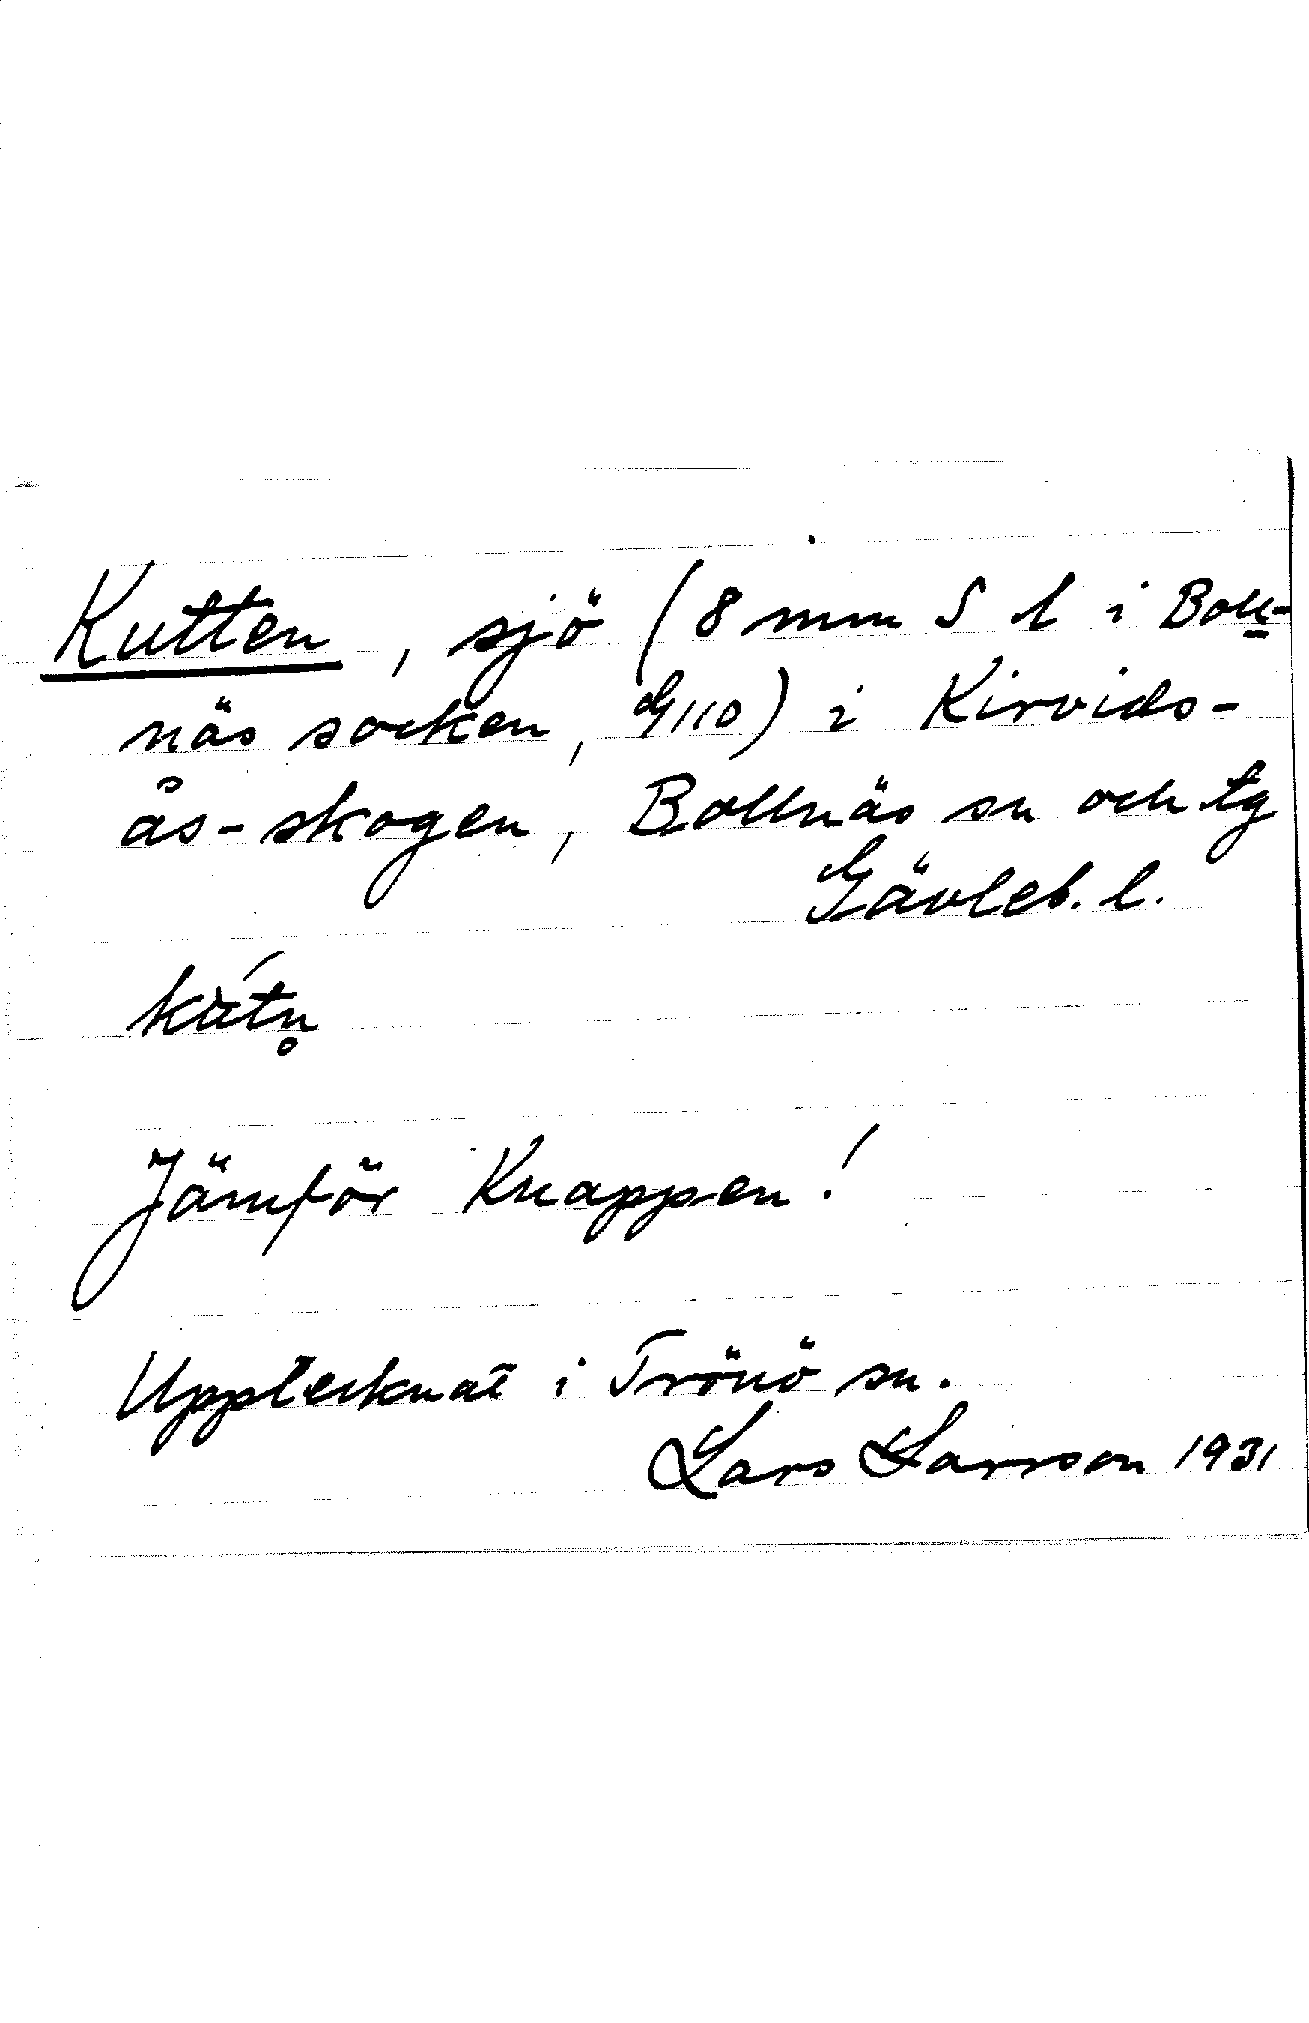 Kutten, sjö (8 mm S l i Boll-
näs socken, G110) i Kirvids-
ås-skogen, Bollnäs sn och tg
Gävleb. l.
kùtn̥
Jämför Knappen!
Upptecknat i Trönö sn.
Lars Larsson 1931